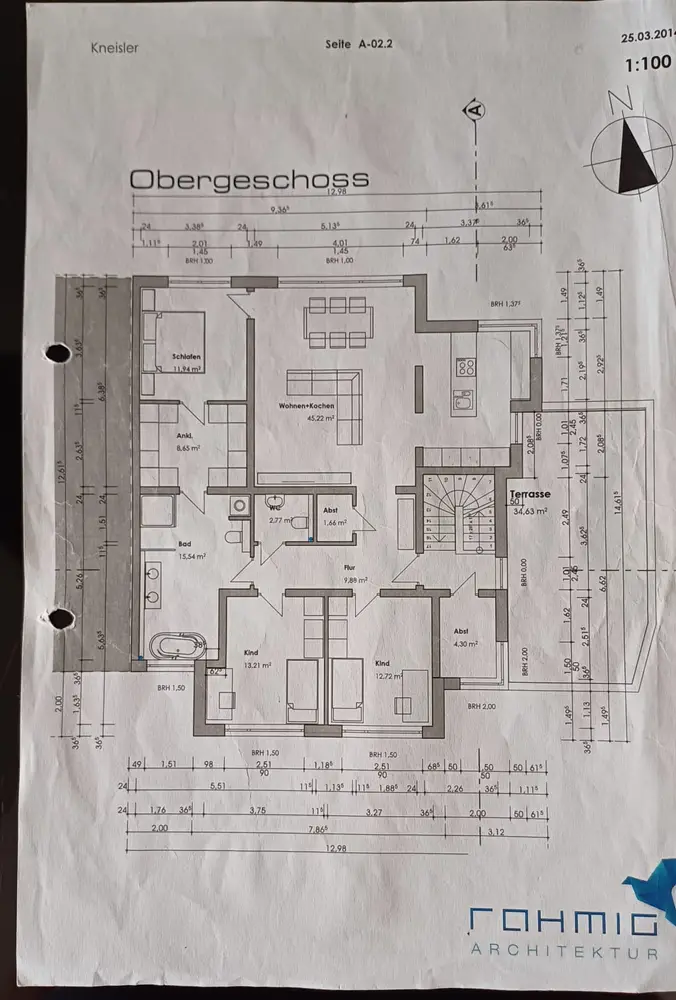 Kneisler
Seite A-02.2
25.03.2014
1:100
N
A
Obergeschoss
12,98
9,36⁵
3,61⁵
24 3,38⁵ 24 5,13⁵ 24 3,37⁵ 36⁵
1,11⁵ 2,01 1,49 4,01 74 1,62 2,00
1,45 1,45 63⁵
BRH 1,00 BRH 1,00
BRH 1,37⁵
BRH 1,37⁵
Schlafen
11,94 m²
Wohnen+Kochen
45,22 m²
Ankl.
8,65 m²
BRH 0,00
Terrasse
34,63 m²
WC
2,77 m²
Abst
1,66 m²
Bad
15,54 m²
Flur
9,88 m²
BRH 0,00
Kind
13,21 m²
Kind
12,72 m²
Abst
4,30 m²
BRH 2,00
BRH 1,50
BRH 2,00
BRH 1,50 BRH 1,50
36⁵ 3,63⁵ 11⁵ 2,63 24 1,51 11⁵ 5,63⁵ 36⁵
12,61⁵ 5,26 2,00 1,63⁵ 36⁵
6,38⁵
36⁵ 1,49 1,12⁵ 1,49
1,21⁵ 36⁵ 2,19 2,92⁵
1,71
1,01 2,45 36⁵ 1,72 2,08⁵
2,08⁵ 1,07⁵ 24
50
2,49 3,62⁵ 14,61⁵
1,01 2,45 6,62
1,62 24 2,51⁵
1,50 50 36⁵
1,49⁵ 1,13 1,49⁵
36⁵
49 1,51 98 2,51 1,18⁵ 2,51 68⁵ 50 50 50 61⁵
90 90 50
24 5,51 11⁵ 1,13⁵ 11⁵ 1,88⁵ 24 2,26 36⁵ 1,11⁵
24 1,76 36⁵ 3,75 11⁵ 3,27 36⁵ 2,00 50 61⁵
2,00 7,86⁵ 3,12
12,98
rahmig
ARCHITEKTUR